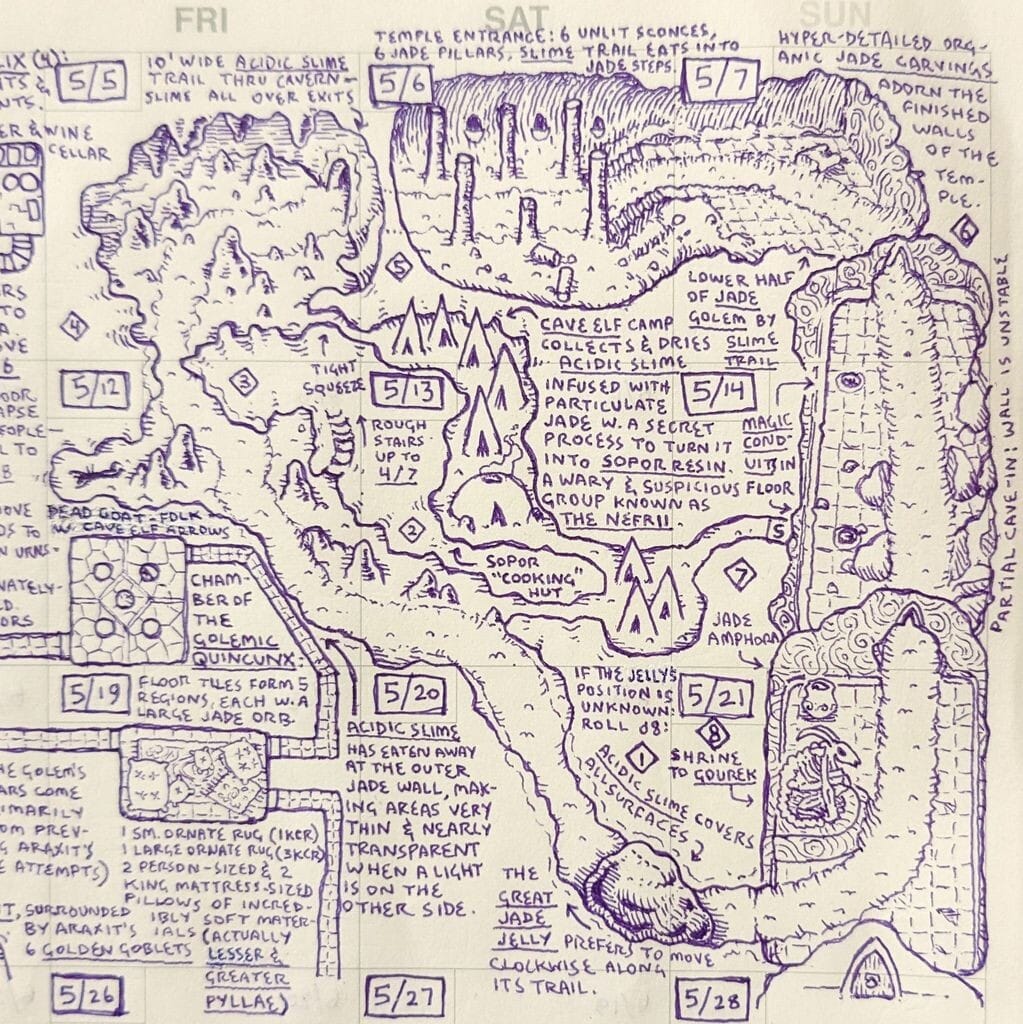 FRI
SAT
SUN
LIX (4):
ITS &
NTS.
5/5
10' WIDE ACIDIC SLIME
TRAIL THRU CAVERN-
SLIME ALL OVER EXITS
TEMPLE ENTRANCE: 6 UNLIT SCONCES,
6 JADE PILLARS, SLIME TRAIL EATS INTO
JADE STEPS.
5/6
5/7
HYPER-DETAILED ORG-
ANIC JADE CARVINGS
ADORN THE
FINISHED
WALLS
OF THE
TEM-
PLE.
6
ER & WINE
CELLAR
5
4
3
TIGHT
SQUEEZE
LOWER HALF
OF JADE
GOLEM BY
SLIME
TRAIL
CAVE ELF CAMP
COLLECTS & DRIES
ACIDIC SLIME
INFUSED WITH
PARTICULATE
JADE W. A SECRET
PROCESS TO TURN IT
INTO SOPOR RESIN.
A WARY & SUSPICIOUS
GROUP KNOWN AS
THE NEFRII.
PARTIAL CAVE-IN: WALL IS UNSTABLE
ERS
TO
A.
OVE
6
5/12
5/13
5/14
MAGIC
COND-
UIT IN
FLOOR
OOR
APSE
PEOPLE-
L TO
8
ROUGH
STAIRS
UP TO
4/7
OVE
DS TO
N URNS-
DEAD GOAT-FOLK
W. CAVE ELF ARROWS
2
S
SOPOR
"COOKING"
HUT
7
JADE
AMPHORA
NATELY-
D.
ORS
CHAM-
BER OF
THE
GOLEMIC
QUINCUNX:
5/19
FLOOR TILES FORM 5
REGIONS, EACH W. A
LARGE JADE ORB.
5/20
5/21
IF THE JELLY'S
POSITION IS
UNKNOWN:
ROLL d8:
1
8
SHRINE
TO GOUREK
ACIDIC SLIME
HAS EATEN AWAY
AT THE OUTER
JADE WALL, MAK-
ING AREAS VERY
THIN & NEARLY
TRANSPARENT
WHEN A LIGHT
IS ON THE
OTHER SIDE.
ACIDIC SLIME COVERS
ALL SURFACES
HE GOLEM'S
ARS COME
IMARILY
OM PREV-
G ARAXIT'S
E ATTEMPTS)
1 SM. ORNATE RUG (1KCR)
1 LARGE ORNATE RUG (3KCR)
2 PERSON-SIZED & 2
KING MATTRESS-SIZED
PILLOWS OF INCRED-
IBLY SOFT MATER-
IALS (ACTUALLY
LESSER &
GREATER
PYLLAE)
T, SURROUNDED
BY ARAXIT'S
6 GOLDEN GOBLETS
THE
GREAT
JADE
JELLY PREFERS TO MOVE
CLOCKWISE ALONG
ITS TRAIL.
5/26
5/27
5/28